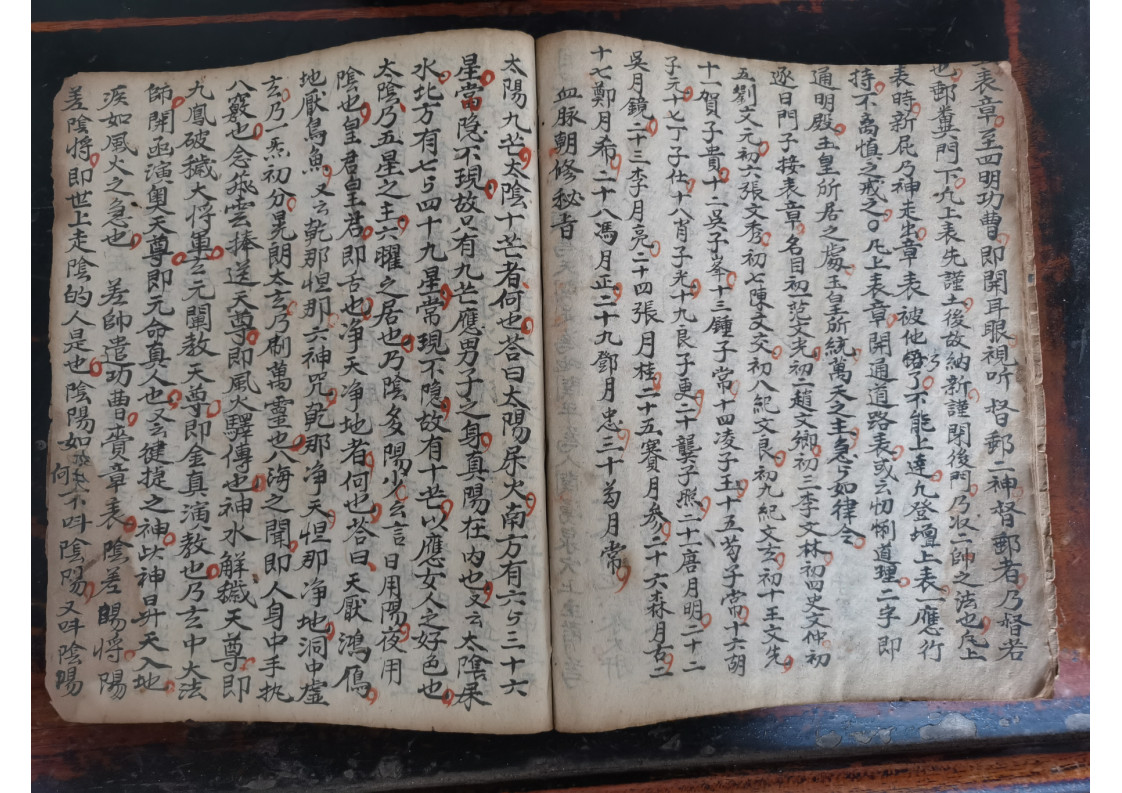 上表章至四明功曹即開耳眼視听督郵二神督郵者乃督若
也郵糞門下凢上表先謹土後故納新謹閉後門乃収二帥之法也凢上
表時新屁乃神走出章表被他悟了不能上達凢登壇上表應行
持不离慎之戒之凢上表章開通道路表或云忉悧道理二字即
通明殿玉皇所居之處玉皇所統萬天之主急ㄣ如律令
逐日門子接表章名目初一范文光初二趙文卿初三李文林初四史文仲初
五劉文元初六張文秀初七陳文交初八紀文良初九紀文玄初十王文先
十一賀子貴十二吳子峯十三鍾子常十四凌子玉十五芶子常十六胡
子元十七丁子仕十八肖子光十九良子更二十龔子熙二十一唐月明二十二
吳月鏡二十三李月亮二十四張月桂二十五賽月参二十六森月古二
十七鄭月希二十八馮月正二十九鄧月忠三十芶月常
血脉朝修秘旨
太陽九芒太陰十芒者何也荅曰太陽屎火南方有六ㄣ三十六
星當隐不現故只有九芒應男子之身真陽在内也又云太陰屎
水北方有七ㄣ四十九星常現不隐故有十芒以應女人之好色也
太陰乃五星之主六曜之居也乃陰多陽少云言日用陽夜用
陰也皇君皇君即舌也净天净地者何也荅曰天厭鴻鴈
地厭鳥魚又云乾那怛那六神咒乾那净天怛那净地洞中虚
玄乃一炁初分晃朗太玄乃刷萬靈也八海之聞即人身中手执
八竅也念飛雲捧送天尊即風火驛傳也神水解穢天尊即
九鳳破穢大将軍玄元闡教天尊即金真演教也乃玄中大法
師開函演奥天尊即元命真人也又云健捷之神此神昇天入地
疾如風火之急也差帥遣功曹賫章表陰差陽将陽
差陰将即世上走陰的人是也陰陽如何不呌陰陽又呌陰陽